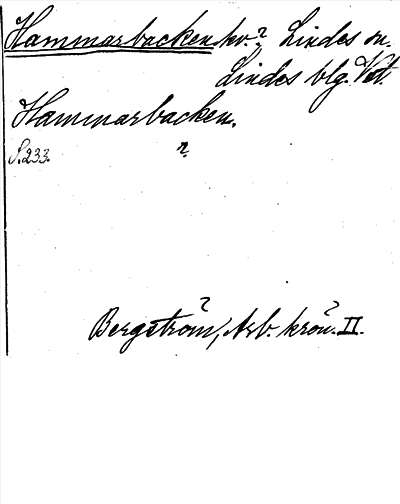 Hammarbacken kv.? Lindes sn.
Lindes blg. Vstl.
Hammarbacken.
S. 233. ?
Bergström, Arb. krön. II.